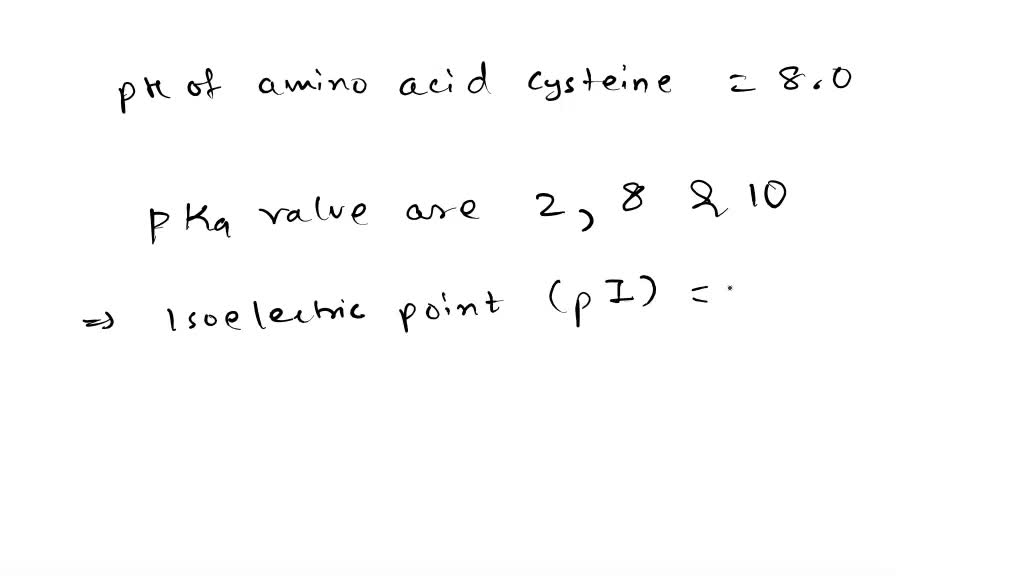 pH of amino acid cysteine = 8.0
pKa value are 2, 8 & 10
⇒ Isoelectric point (pI) =